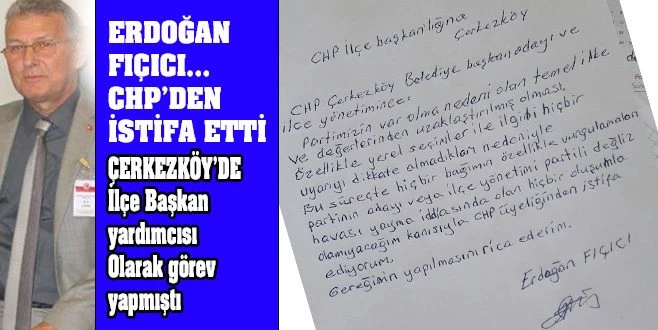 ERDOĞAN
FIÇICI...
CHP'DEN
İSTİFA ETTİ
ÇERKEZKÖY'DE
İlçe Başkan
yardımcısı
Olarak görev
yapmıştı
CHP İlçe başkanlığına
Çerkezköy
CHP Çerkezköy Belediye başkan adayı ve
ilçe yönetimince:
Partimizin var olma nedeni olan temel ilke
ve değerlerinden uzaklaştırılmış olması,
Özellikle yerel seçimler ile ilgili hiçbir
uyarıyı dikkate almadıkları nedeniyle
Bu süreçte hiçbir bağımın özellikle vurgulamaları
partinin adayı veya ilçe yönetimi partili değliz
havası yayma iddiasında olan hiçbir oluşumla
olamıyacağım kanısıyla CHP üyeliğinden istifa
ediyorum.
Gereğimin yapılmasını rica ederim.
Erdoğan FIÇICI